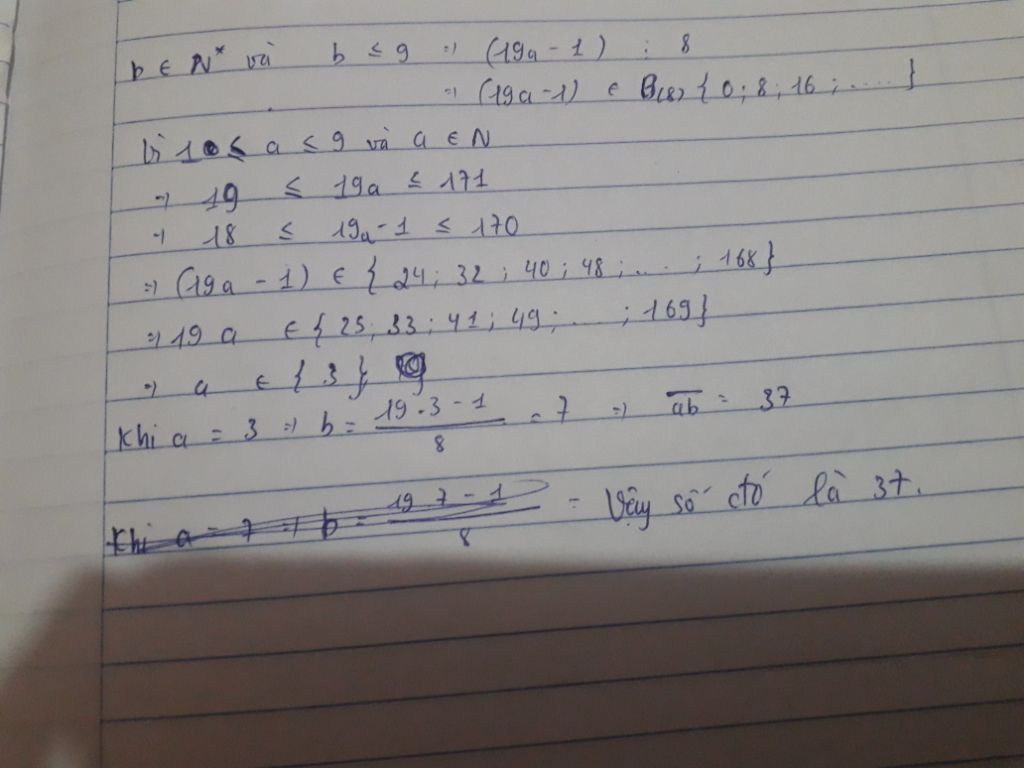 b ∈ N* và b ≤ 9 => (19a - 1) ⋮ 8
=> (19a - 1) ∈ B(8) { 0 ; 8 ; 16 ; ..... }
Vì 1 ≤ a ≤ 9 và a ∈ N
=> 19 ≤ 19a ≤ 171
=> 18 ≤ 19a - 1 ≤ 170
=> (19a - 1) ∈ { 24 ; 32 ; 40 ; 48 ; ... ; 168 }
=> 19 a ∈ { 25 ; 33 ; 41 ; 49 ; ... ; 169 }
=> a ∈ { 3 }
Khi a = 3 => b = \frac{19 . 3 - 1}{8} = 7 => \overline{ab} = 37
Khi a = 7 => b = \frac{19 7 - 1}{8} = Vậy số đó là 37.